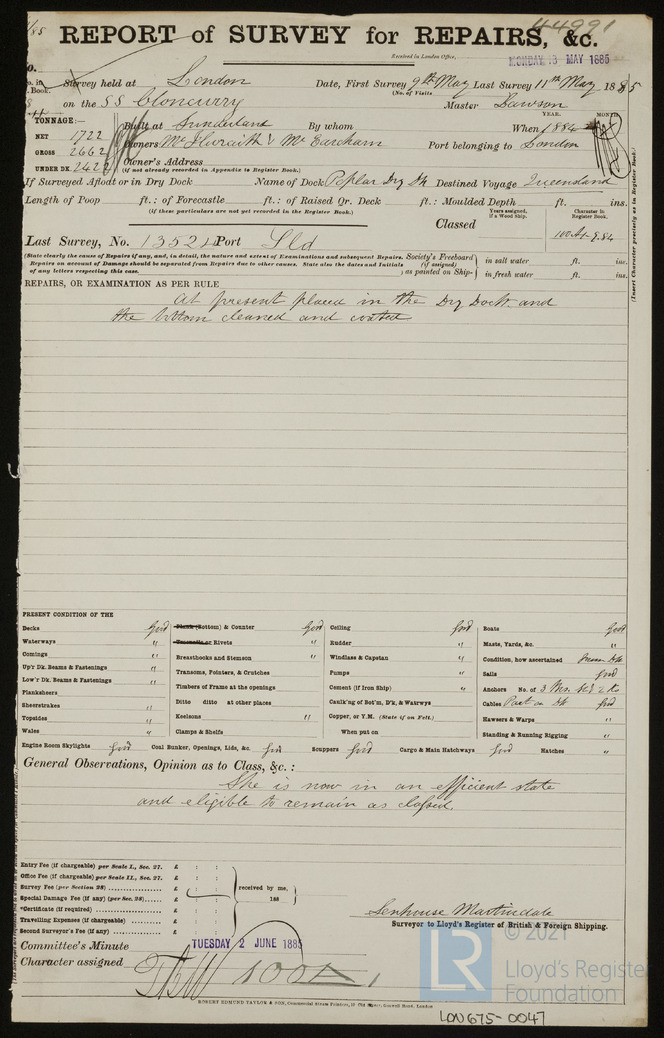 44991
REPORT of SURVEY for REPAIRS, &c.
Received in London Office,
MONDAY 18 MAY 1885
Survey held at London Date, First Survey 9th May Last Survey 11th May 1885
(No. of Visits
on the SS Cloncurry Master Lawson
TONNAGE:— Built at Sunderland By whom When 1884
YEAR. MONTH
NET 1722
GROSS 2662 Owners McIlwraith & McEacharn Port belonging to London
UNDER DK. 2422 Owner's Address
(if not already recorded in Appendix to Register Book.)
If Surveyed Afloat or in Dry Dock Name of Dock Poplar Dry Dk Destined Voyage Queensland
Length of Poop ft.: of Forecastle ft.: of Raised Qr. Deck ft.: Moulded Depth ft. ins.
(If these particulars are not yet recorded in the Register Book.)
Classed
Years assigned, if a Wood Ship.
Character in Register Book.
100A1 9.84
Last Survey, No. 13524 Port Sld
(State clearly the cause of Repairs if any, and, in detail, the nature and extent of Examinations and subsequent Repairs.
Repairs on account of Damage should be separated from Repairs due to other causes. State also the dates and Initials
of any letters respecting this case.
Society's Freeboard (if assigned) as painted on Ship-
in salt water ft. ins.
in fresh water ft. ins.
(Insert Character precisely as in Register Book.)
REPAIRS, OR EXAMINATION AS PER RULE
At present placed in the Dry Dock and
the bottom cleaned and coated
PRESENT CONDITION OF THE
Decks Good
Waterways "
Comings "
Up'r Dk. Beams & Fastenings "
Low'r Dk. Beams & Fastenings "
Planksheers
Sheerstrakes "
Topsides "
Wales "
Plank (Bottom) & Counter Good
Treenails or Rivets "
Breasthooks and Stemson "
Transoms, Pointers, & Crutches
Timbers of Frame at the openings
Ditto ditto at other places
Keelsons "
Clamps & Shelfs
Ceiling Good
Rudder "
Windlass & Capstan "
Pumps "
Cement (if Iron Ship) "
Caulk'ng of Bot'm, D'k, & Watrwys
Copper, or Y.M. (State if on Felt.)
When put on
Boats Good
Masts, Yards, &c. "
Condition, how ascertained from Dk
Sails Good
Anchors No. of
Cables Part on Dk Good
Hawsers & Warps "
Standing & Running Rigging "
Engine Room Skylights Good Coal Bunker, Openings, Lids, &c. Good Scuppers Good Cargo & Main Hatchways Good Hatches "
General Observations, Opinion as to Class, &c.:
She is now in an efficient state
and eligible to remain as classed.
Entry Fee (if chargeable) per Scale I., Sec. 27. £ : :
Office Fee (if chargeable) per Scale II., Sec. 27. £ : :
Survey Fee (per Section 28) £ : :
Special Damage Fee (if any) (per Sec. 28) £ : :
*Certificate (if required) £ : :
Travelling Expenses (if chargeable) £ : :
Second Surveyor's Fee (if any) £ : :
received by me,
188
Senhouse Martindale
Surveyor to Lloyd's Register of British & Foreign Shipping.
Committee's Minute TUESDAY 2 JUNE 1885
Character assigned 100A1
© 2021
LR Lloyd's Register
Foundation
ROBERT EDMUND TAYLOR & SON, Commercial Steam Printers, 19 Old Street, Goswell Road, London
LDN675-0047